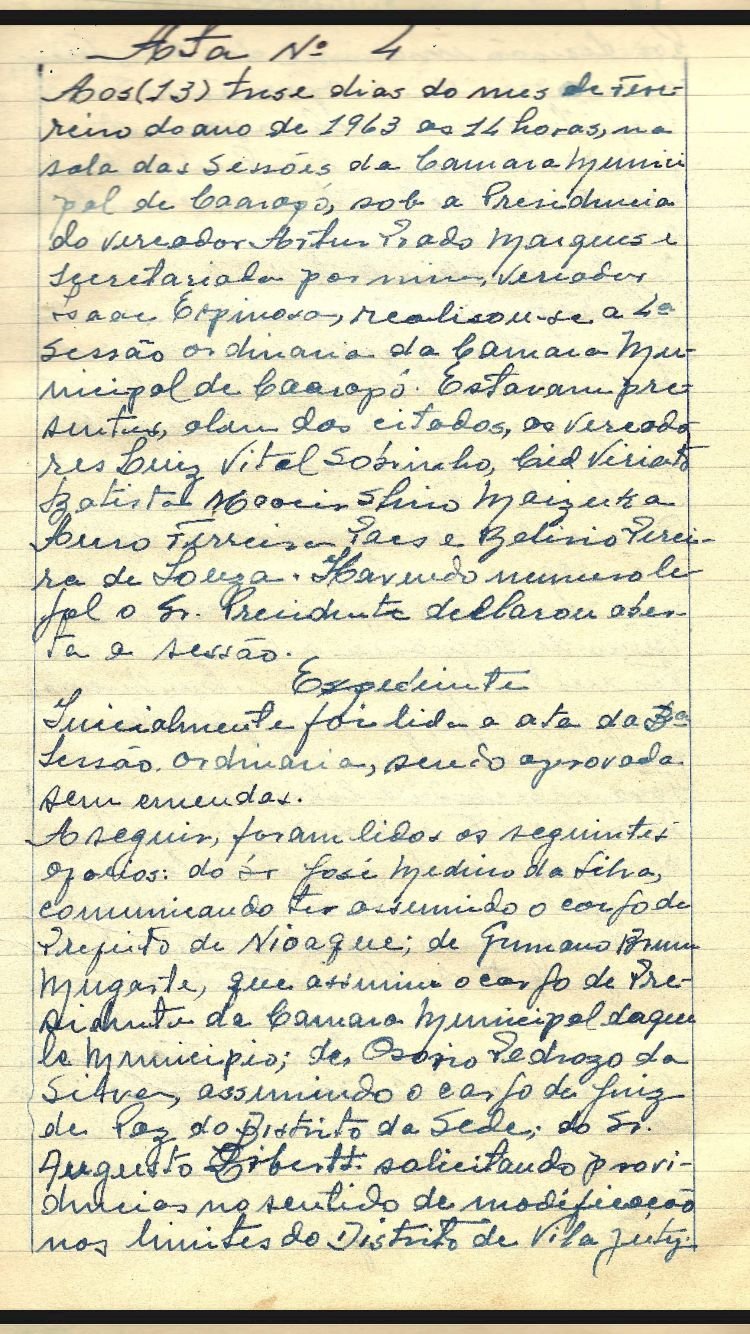 Acta Nº 4
Aos (13) trese dias do mes de Feve-
reiro do ano de 1963 as 14 horas, na
sala das Sessões da Camara Munici
pal de Caarapó, sob a Presidencia
do vereador Artur Prado Marques e
secretariada por mim, vereador
Isaac Espinosa, realisou-se a 4ª
Sessão ordinaria da Camara Mu-
nicipal de Caarapó. Estavam pre-
sentes, alem dos citados, os vereado
res Luiz Vital Sobrinho, Cied Viriato
Batista Shiro Maizuka
Auro Ferreira Paes e Belirio Perei-
ra de Souza. Havendo numero le-
gal o Sr. Presidente declarou aber-
ta a sessão.
Expediente
Inicialmente foi lida a ata da 3ª
Sessão ordinaria, sendo aprovada
sem emendas.
A seguir, foram lidos os seguintes
oficios: do Sr José Medino da Silva,
comunicando ter assumido o cargo de
Prefeito de Nioaque; de Brum
Mugarte, que assumiu o cargo de Pre-
sidente da Camara Municipal daque
le Municipio; de Osorio Pedrozo da
Silva, assumindo o cargo de Juiz
de Paz do Distrito da Sede; do Sr.
Augusto solicitando provi-
dencias no sentido de modificação
nos limites do Distrito de Vila Juty.